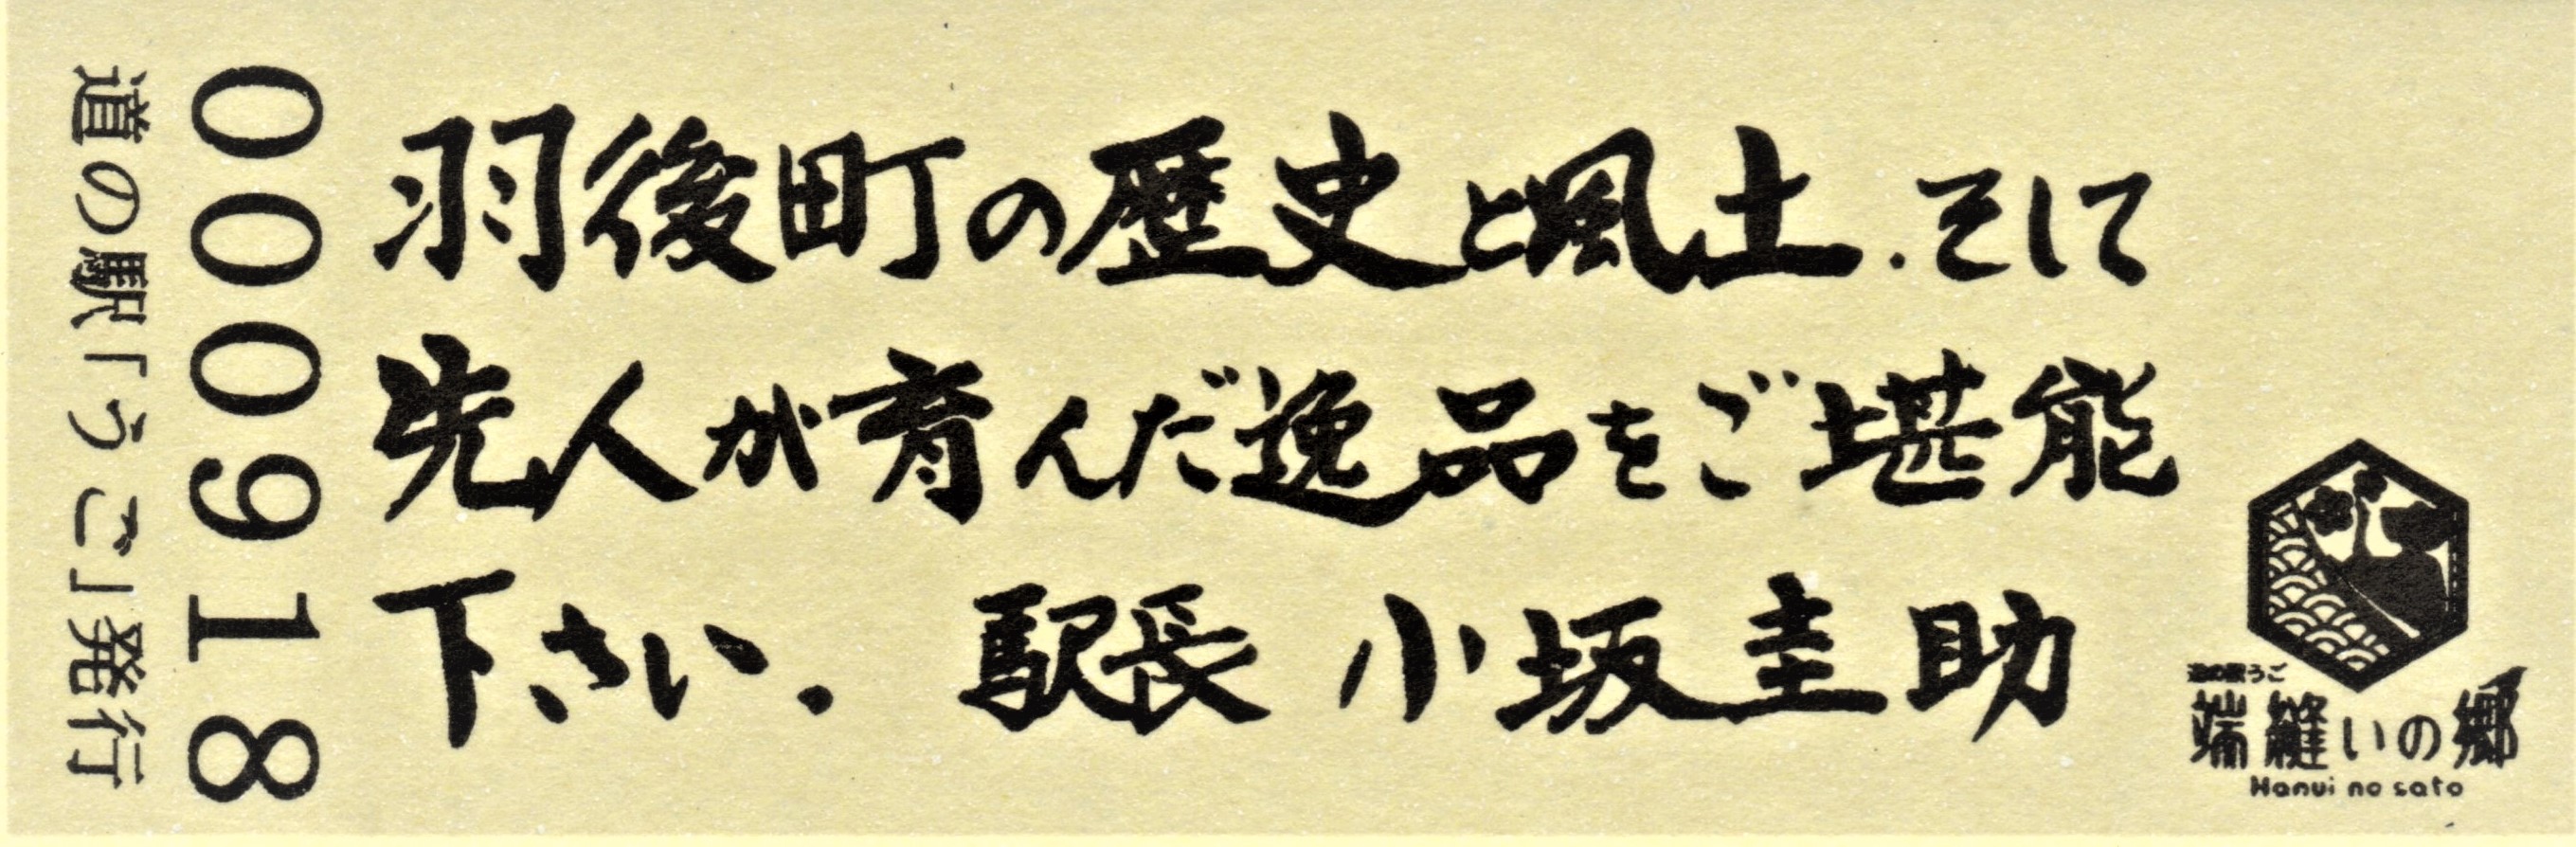 道の駅「うご」発行
000918
羽後町の歴史と風土.そして
先人が育んだ逸品をご堪能
下さい. 駅長 小坂圭助
道の駅うご
端縫いの郷
Hanui no sato